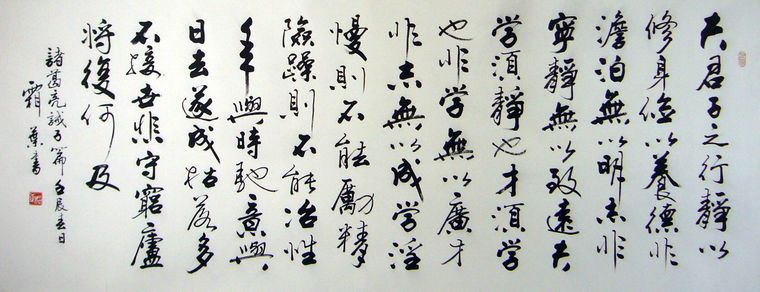 夫君子之行靜以
修身儉以養德非
澹泊無以明志非
寧靜無以致遠夫
学須靜也才須学
也非学無以廣才
非志無以成学淫
慢則不能勵精
險躁則不能冶性
年與時馳意與
日去遂成枯落多
不接世非守窮廬
将復何及
諸葛亮誡子篇壬辰春日
霜葉書